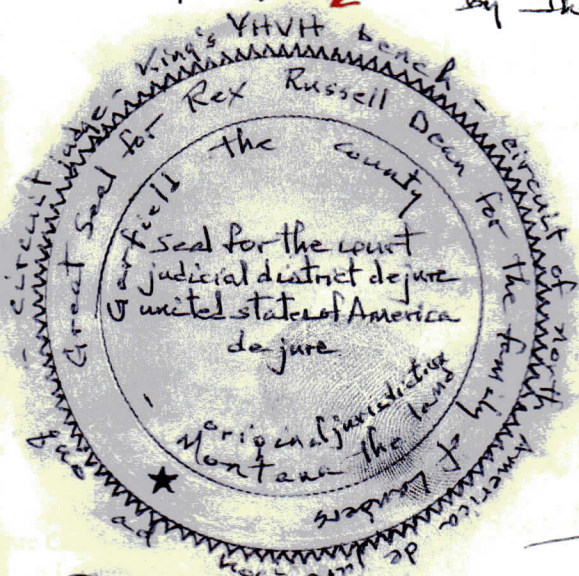 By
YHVH
- circuit judge - King's bench - circuit of north America de jure
ad quo
Great Seal for Rex Russell Dean for the family of Landers
Garfield the county
seal for the court
judicial district de jure
united states of America
de jure
original jurisdiction
Montana the land